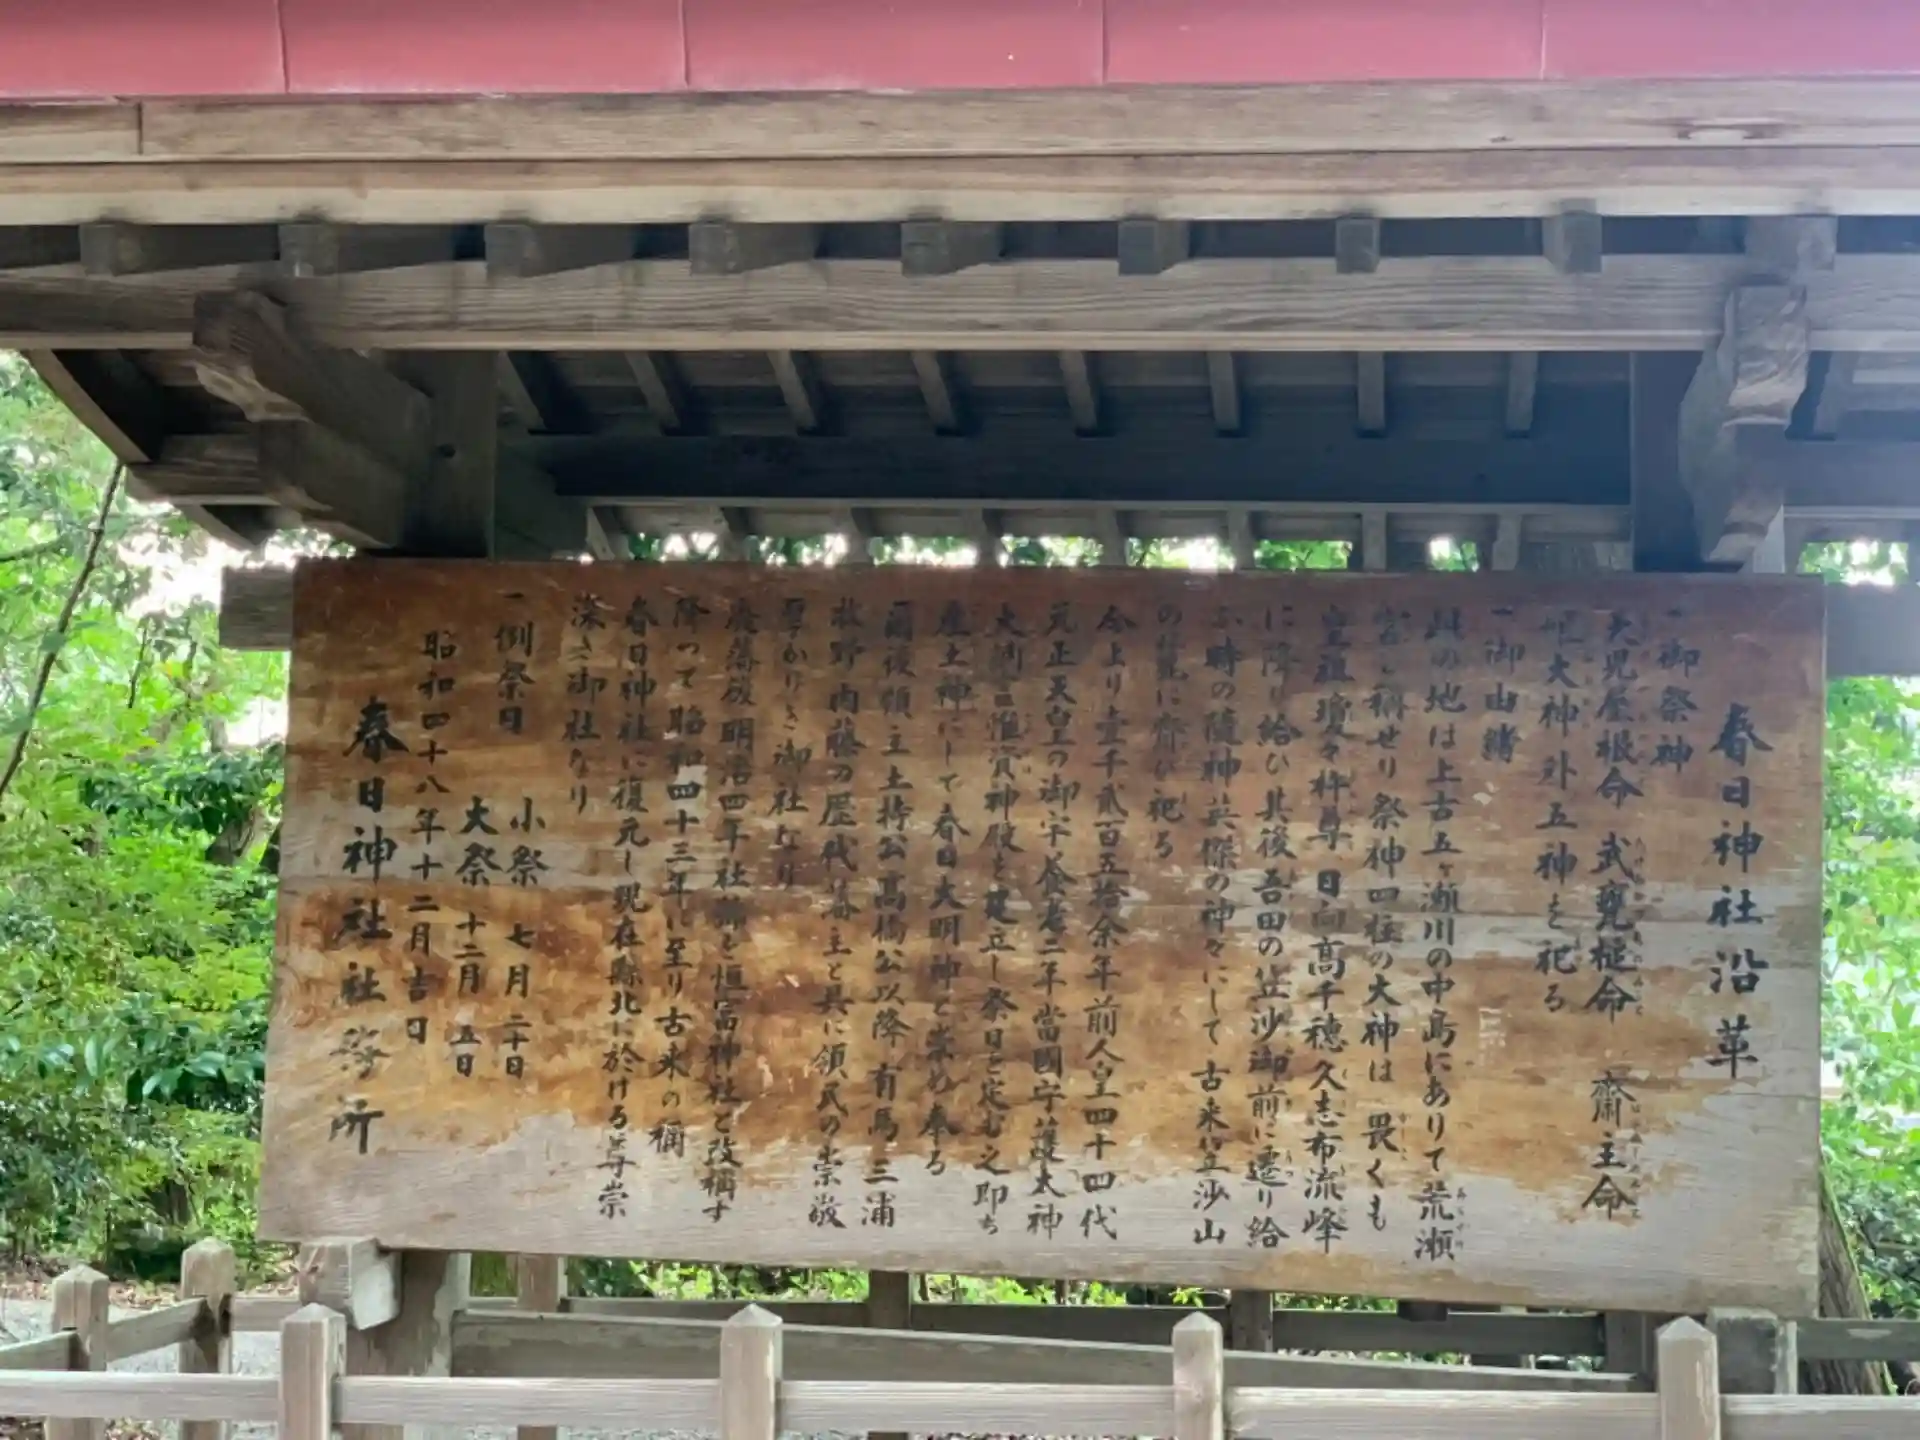 春日神社沿革
一御祭神
天児屋根命 武甕槌命 齋主命
姫大神外五神を祀る
一御由緒
此の地は上古五ヶ瀬川の中島にありて荒瀬
宮と稱せり祭神四柱の大神は畏くも
皇祖瓊々杵尊日向高千穂久志布流峰
に降り給ひ其後吾田の笠沙御前に遷り給
ふ時の隨神英傑の神々にして古来笠沙山
の麓に齋ひ祀る
今上り壹千貳百五拾余年前人皇四十四代
元正天皇の御宇養老二年當國守護大神
大捌惟資神殿を建立し祭日を定む之即ち
産土神にして春日大明神と崇め奉る
爾後領主土持公高橋公以降有馬三浦
牧野内藤の歴代藩主と共に領民の崇敬
厚かりき御社なり
廃藩後明治四年社稱を恒富神社と改稱す
降つて昭和四十三年に至り古来の稱
春日神社に復元し現在縣北に於ける尊崇
深き御社なり
一例祭日 小祭 七月二十日
大祭 十二月五日
昭和四十八年十二月吉日
春日神社社務所